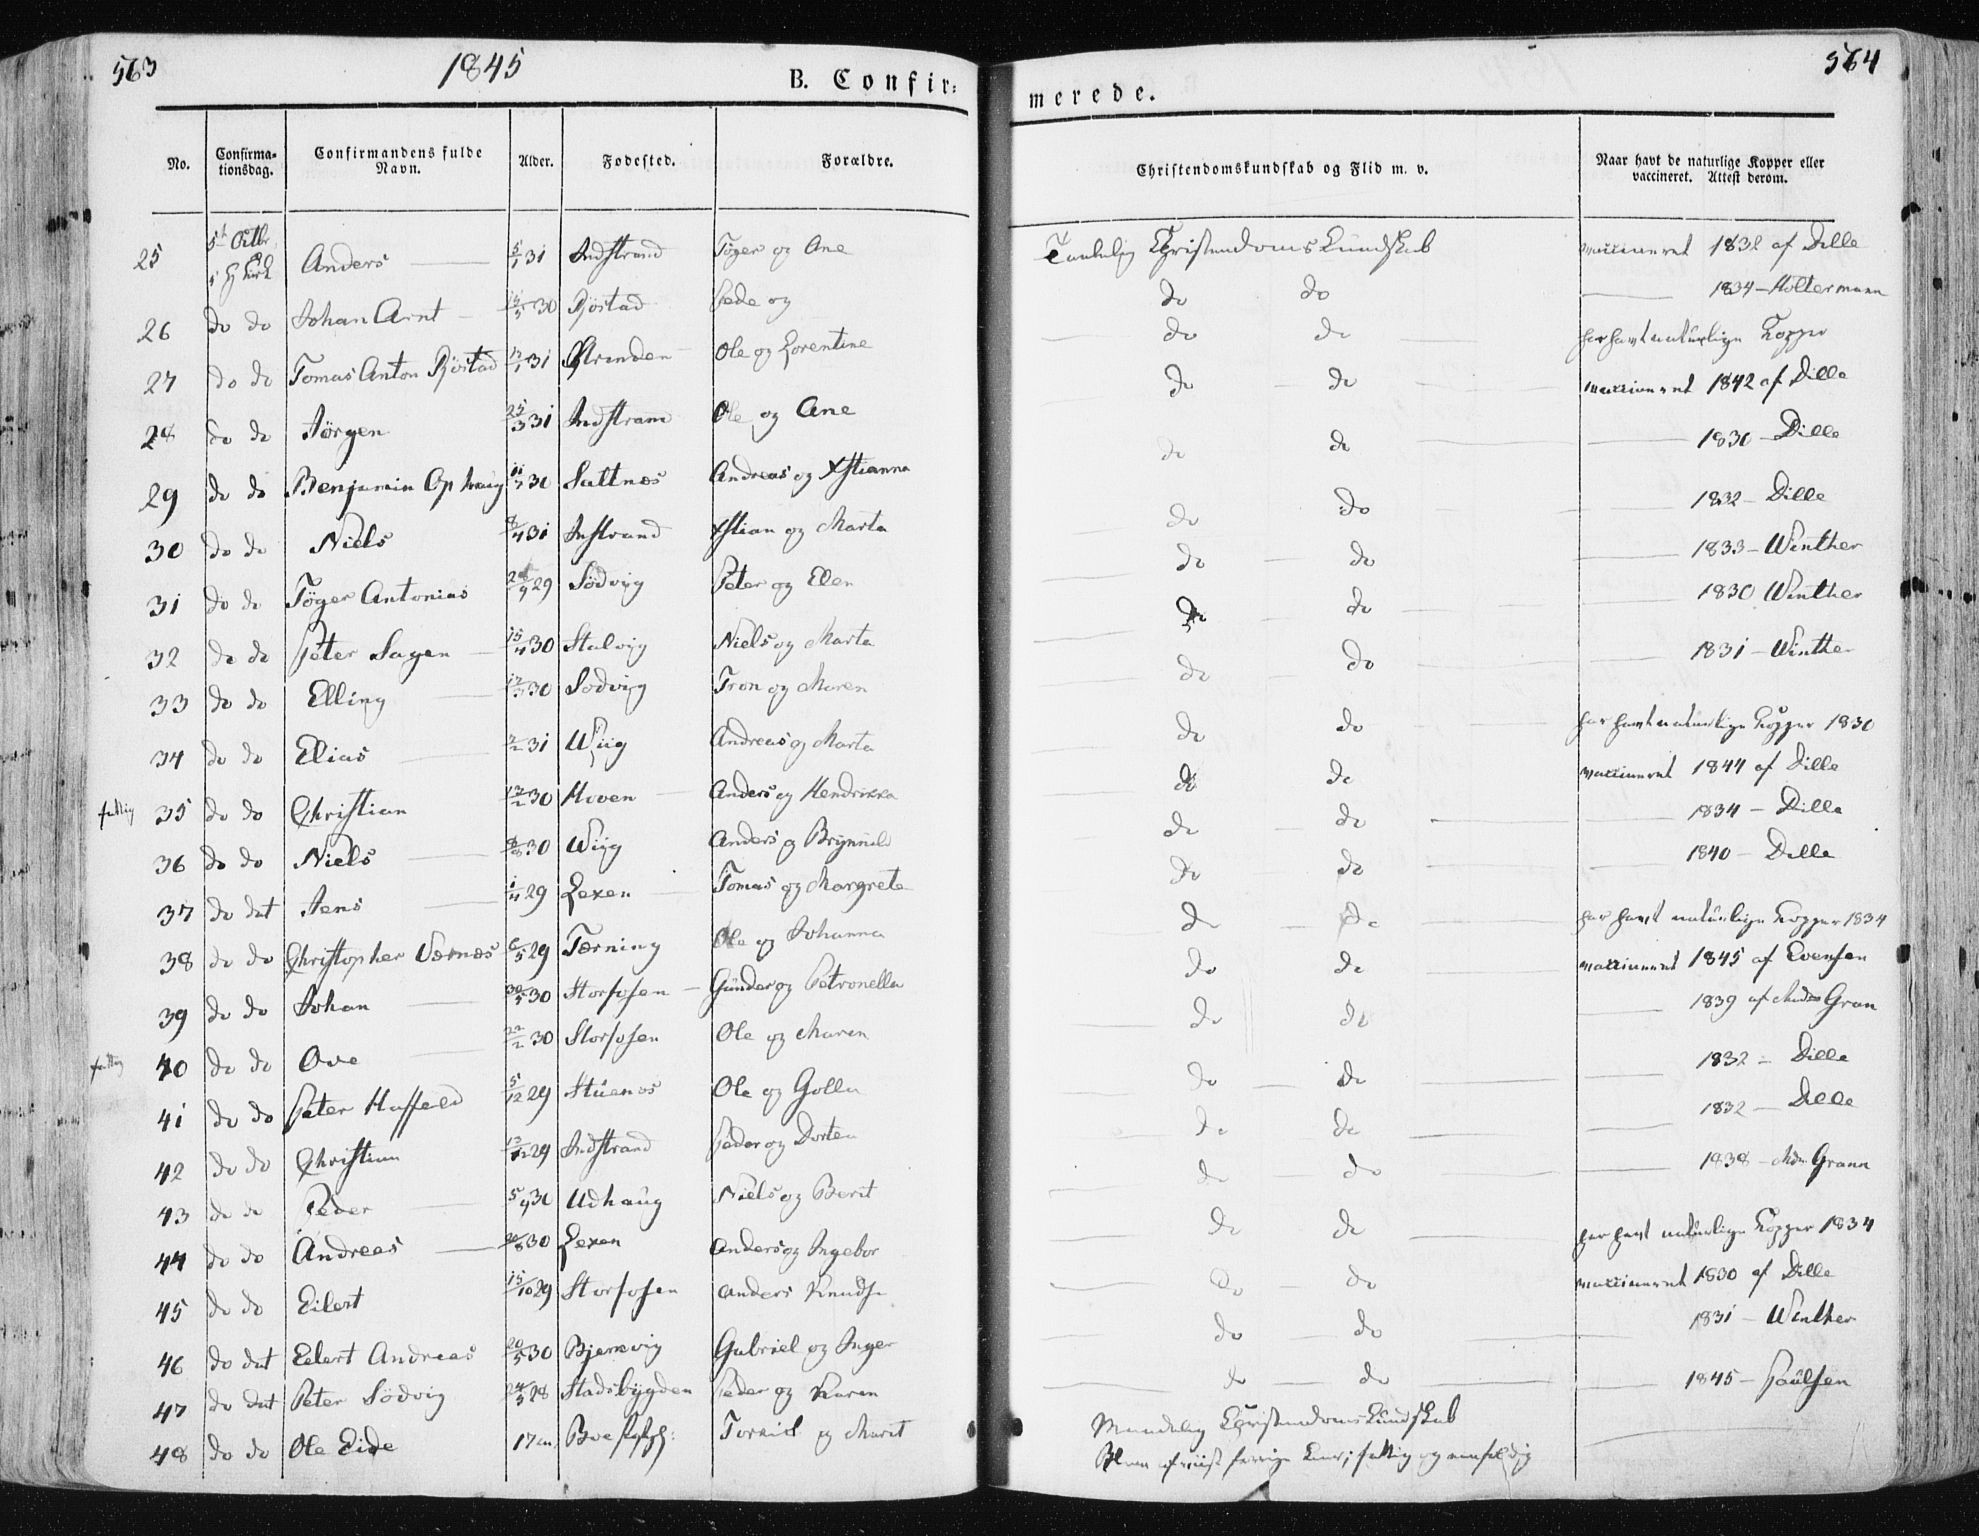 563
1845
B. Confir:
merede.
564
No.
Confirma-
tionsdag.
Confirmandens fulde
Navn.
Alder.
Fødested.
Forældre.
Christendomskundskab og Flid m. v.
Naar havt de naturlige Kopper eller
vaccineret. Attest derom.
25 5t Octbr Anders 5/1 31 Indstrand Töger og Ane Christendomskundskab vaccineret 1832 af Dille
26 do do Johan Arnt 30 Röstad Pede og do do 1834 - Holtermann
27 do do Tomas Anton Röstad 31 Ole og Lorentine do do har havt naturlige Kopper
28 do do Jörgen 25/3 31 Indstrand Ole og Ane do do vaccineret 1842 af Dille
29 do do Benjamin Ophaug 30 Saltnæs Andreas og Xstianna do do 1830 - Dille
30 do do Niels 8/4 31 Instrand Xstian og Marta do do 1832 - Dille
31 do do Töger Antonius 29 Södvig Peter og Elen do do 1833 - Winther
32 do do Peter Sagen 15/4 30 Stalvig Niels og Marta do do 1830 Winther
33 do do Elling 30 Sodvig Tron og Maren do do 1831 - Winther
34 do do Elias 31 Wiig Andreas og Marta do do har havt naturlige Kopper 1830
fattig 35 do do Christian 30 Hoven Anders og Hendrikka do do vaccineret 1844 af Dille
36 do do Niels 30 Wiig Anders og Brynnild do do 1834 - Dille
37 do dat Jens 1/4 29 Lexen Tomas og Margrete do do 1840 - Dille
38 do do Christopher Værnæs 6/5 29 Tærning Ole og Johanna do do har havt naturlige Kopper 1834
39 do do Johan 30/5 30 Storfosen Gunder og Petronella do do vaccineret 1845 af Evensen
fattig 40 do do Ove 30 Storfosen Ole og Maren do do 1839 af Gran
41 do do Peter Haffeld 5/12 29 Stuenæs Ole og Golla do do 1832 - Dille
42 do do Christian 13/12 29 Indstrand Peder og Dortea do do 1832 - Dille
43 do do Peder 5/9 30 Udhaug Niels og Berit do do 1838 - Grann
44 do do Andreas 30 Lexen Anders og Ingebor do do har havt naturlige Kopper 1834
45 do do Eilert 15/10 29 Storfosen Anders Knuds do do vaccineret 1830 af Dille
46 do dat Eilert Andreas 20/5 30 Bjerkvig Gabriel og Inger do do 1831 - Winther
47 do dat Peter Södvig 28 Stadsbygden Peder og Karen do do 1845 - Paulsen
48 do do Ole Eide 17 Torkiel og Marit Christendomskundskab
fattig og eenfoldig